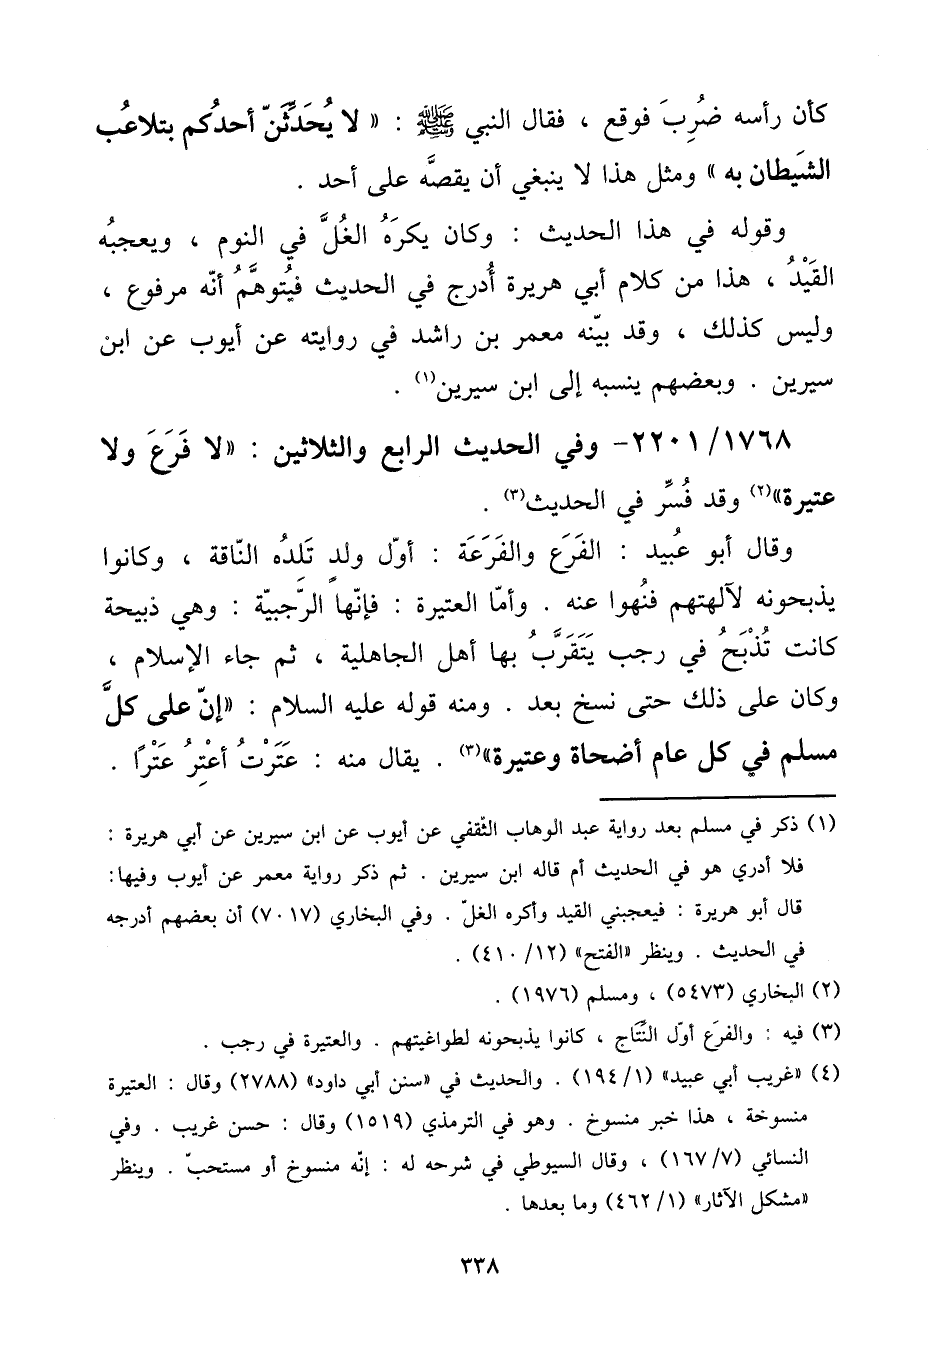 كأن رأسه ضُرِبَ فوقع ، فقال النبي ﷺ : « لا يُحَدِّثَنّ أحدُكم بتلاعبُ
الشَيطان به » ومثل هذا لا ينبغي أن يقصَّه على أحد .
وقوله في هذا الحديث : وكان يكرَهُ الغُلَّ في النوم ، ويعجبُه
القَيْدُ ، هذا من كلام أبي هريرة أُدرج في الحديث فيُتوهَّمُ أنّه مرفوع ،
وليس كذلك ، وقد بيّنه معمر بن راشد في روايته عن أيوب عن ابن
سيرين . وبعضهم ينسبه إلى ابن سيرين(١) .
٢٢٠١/١٧٦٨- وفي الحديث الرابع والثلاثين : «لا فَرَعَ ولا
عتيرة»(٢) وقد فُسِّر في الحديث(٣) .
وقال أبو عُبيد : الفَرَع والفَرَعَة : أوّل ولدٍ تَلدُه النّاقة ، وكانوا
يذبحونه لآلهتهم فنُهوا عنه . وأمّا العتيرة : فإنّها الرَّجبيّة : وهي ذبيحة
كانت تُذْبَحُ في رجب يَتَقَرَّبُ بها أهل الجاهلية ، ثم جاء الإسلام ،
وكان على ذلك حتى نسخ بعد . ومنه قوله عليه السلام : «إنّ على كلَّ
مسلم في كل عام أضحاة وعتيرة»(٣) . يقال منه : عَتَرْتُ أعْتِرُ عَتْرًا .
(١) ذكر في مسلم بعد رواية عبد الوهاب الثّقفي عن أيوب عن ابن سيرين عن أبي هريرة :
فلا أدري هو في الحديث أم قاله ابن سيرين . ثم ذكر رواية معمر عن أيوب وفيها:
قال أبو هريرة : فيعجبني القيد وأكره الغلّ . وفي البخاري (٧٠١٧) أن بعضهم أدرجه
في الحديث . وينظر «الفتح» (١٢/ ٤١٠) .
(٢) البخاري (٥٤٧٣) ، ومسلم (١٩٧٦) .
(٣) فيه : والفرَع أوّل النَّتَاج ، كانوا يذبحونه لطواغيتهم . والعتيرة في رجب .
(٤) «غريب أبي عبيد» (١/ ١٩٤) . والحديث في «سنن أبي داود» (٢٧٨٨) وقال : العتيرة
منسوخة ، هذا خبر منسوخ . وهو في الترمذي (١٥١٩) وقال : حسن غريب . وفي
النسائي (٧/ ١٦٧) ، وقال السيوطي في شرحه له : إنّه منسوخ أو مستحبّ . وينظر
«مشكل الآثار» (١/ ٤٦٢) وما بعدها .
٣٣٨